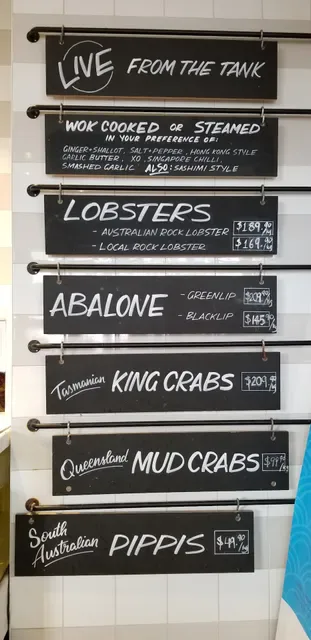 LIVE FROM THE TANK
WOK COOKED OR STEAMED
IN YOUR PREFERENCE OF:
GINGER+SHALLOT, SALT+PEPPER, HONG KONG STYLE
GARLIC BUTTER, XO, SINGAPORE CHILLI,
SMASHED GARLIC ALSO: SASHIMI STYLE
LOBSTERS
- AUSTRALIAN ROCK LOBSTER $189.90/kg
- LOCAL ROCK LOBSTER $169.90/kg
ABALONE
- GREENLIP
- BLACKLIP
Tasmanian KING CRABS
Queensland MUD CRABS
South
Australian PIPPIS $49.90/kg